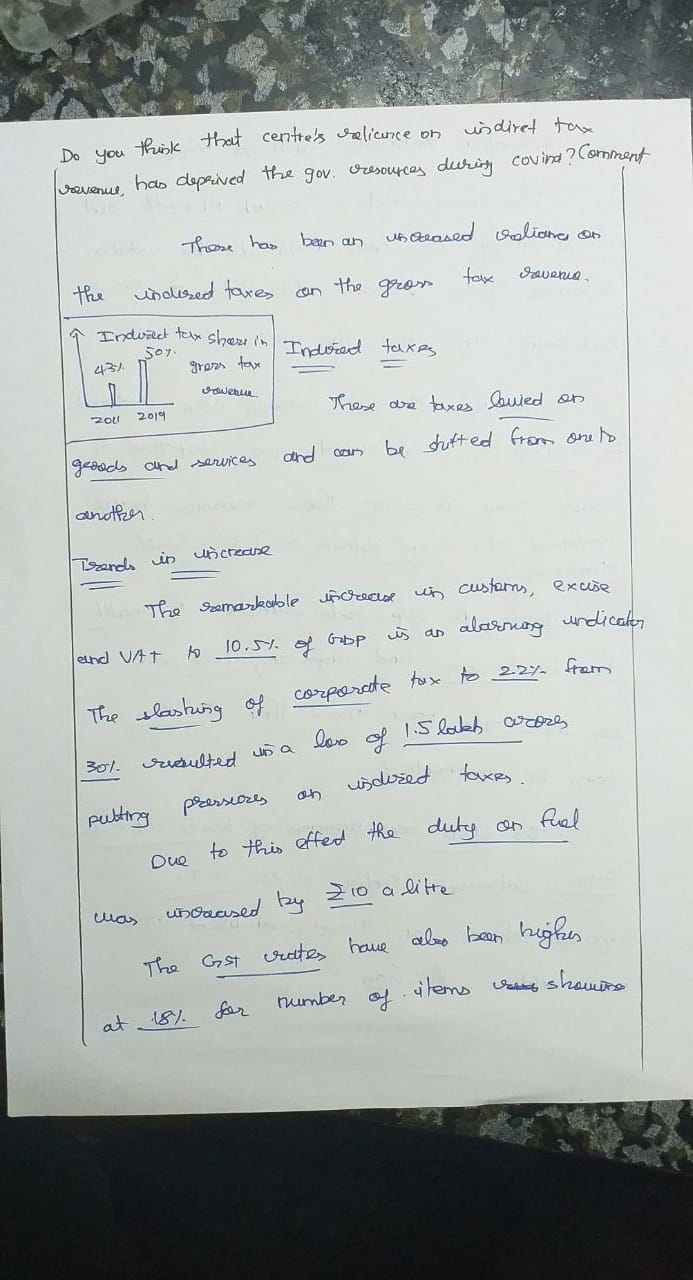 Do you think that centre's reliance on indiret tax
revenue, has deprived the gov. resources during covind? Comment
There has been an increased reliance on
the indirect taxes on the gross tax revenue.
Indirect tax share in
50%
43%
gross tax
revenue
2011 2019
Indirect taxes
These are taxes levied on
goods and services and can be shifted from one to
another.
Trends in increase
The remarkable increase in customs, excise
and VAT to 10.5% of GDP is an alarming indicator
The slashing of corporate tax to 22% from
30% resulted in a loss of 1.5 lakh crores
putting pressures on indirect taxes.
Due to this effect the duty on fuel
was increased by ₹10 a litre
The GST rates have also been higher
at 18% for number of items showing